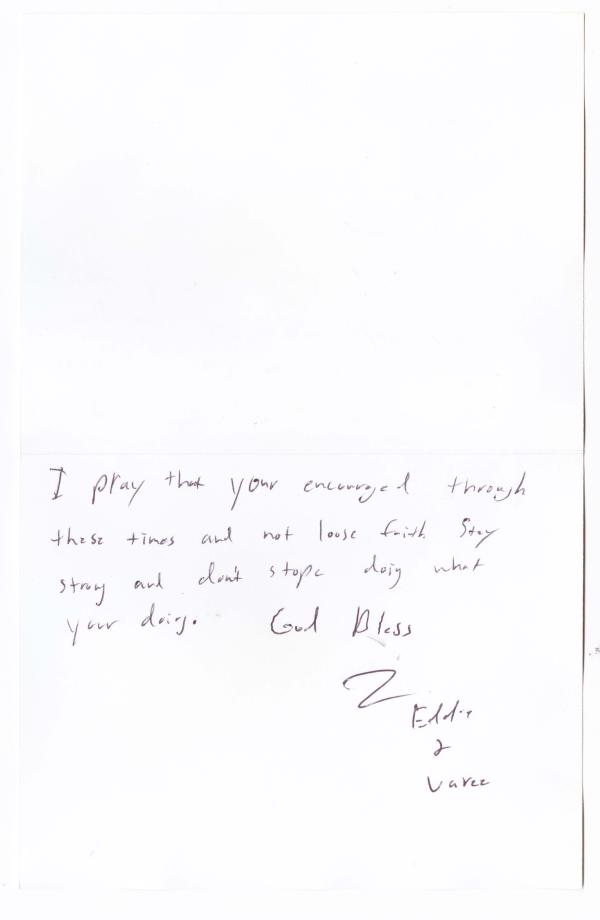 I pray that your encouraged through
these times and not loose faith Stay
strong and don't stope doing what
your doing. God Bless
Eddie
&